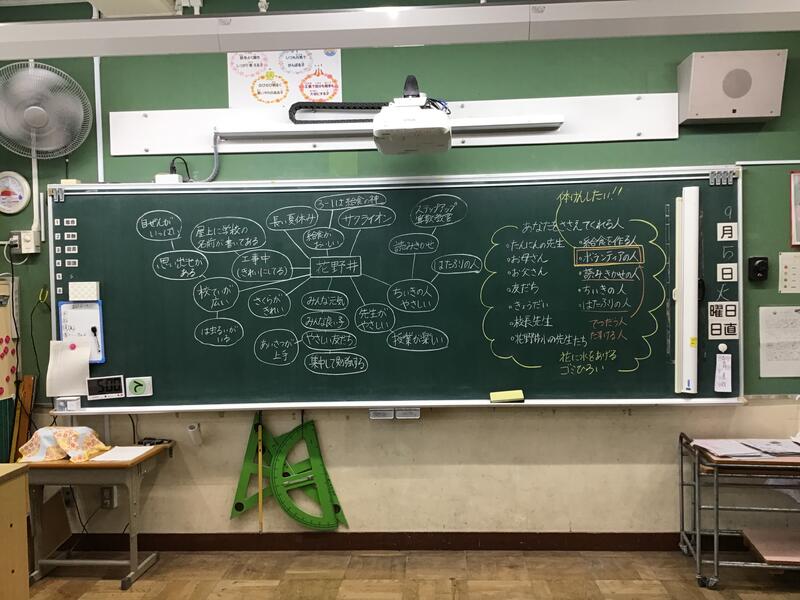 ろーいは給食の神
サクライオン
長い夏休み
給食が
おいしい
ステップアップ
算数教室
読みきかせ
はたふりの人
ちいきの人
やさしい
授業が楽しい
花野井
自ぜんが
いっぱい
屋上に学校の
名前が書いてある
思い出せが
ある
工事中
(きれいにしてる)
校ていが
広い
は虫るいが
いる
さくらが
きれい
みんな元気
みんな良い子
やさしい友だち
集中して勉強する
あいさつが
上手
先生が
やさしい
体けんしたい!!
あなたをささえてくれる人
・たんにんの先生
・お母さん
・お父さん
・友だち
・きょうだい
・校長先生
・花野井小の先生たち
・給食を作る人
・ボランティアの人
・読みきかせの人
・ちいきの人
・はたふりの人
てつだう人
たすける人
花に水をあげる
ゴミひろい
9
月
5
日
火
曜日
日直